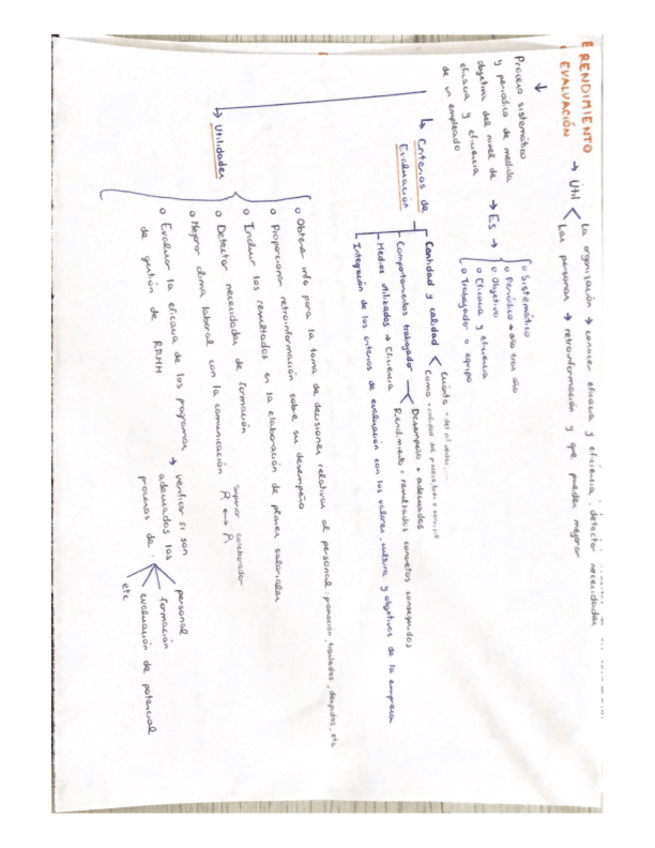 E RENDIMIENTO
EVALUACIÓN
→ Útil < La organización → conocer eficacia y eficiencia, detectar necesidades
Las personas → retroinformación y que puedan mejorar
↓
Proceso sistemático
y periódico de medida
objetiva del nivel de
eficacia y eficiencia
de un empleado
→ Es →
o Sistemático
o Periódico → año tras año
o Objetivo
o Eficacia y eficiencia
o Trabajador o equipo
↳ Criterios de
Evaluación
Cantidad y calidad < Cuánto
Cómo
Comportamientos trabajador < Desempeño → adecuados
Rendimiento → resultados concretos conseguidos
Medios utilizados → Eficiencia
Integración de los criterios de evaluación con los valores, cultura y objetivos de la empresa
↳ Utilidades
o Obtener info para la toma de decisiones relativas al personal: promoción, traslados, despidos, etc
o Proporcionar retroinformación sobre su desempeño
o Incluir los resultados en la elaboración de planes salariales
o Detectar necesidades de formación
o Mejorar clima laboral con la comunicación
superior colaborador
o Evaluar la eficacia de los programas
de gestión de RRHH
→ verificar si son
adecuados los
procesos de:
personal
formación
evaluación de potencial
etc